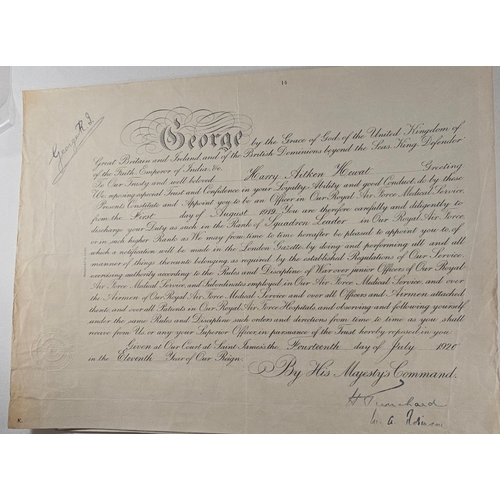 14
George R. I.
George by the Grace of God, of the United Kingdom of
Great Britain and Ireland, and of the British Dominions beyond the Seas, King, Defender
of the Faith, Emperor of India, &c.
To Our Trusty and well beloved Harry Aitken Hewat Greeting
We reposing especial Trust and Confidence in your Loyalty, Ability and good Conduct, do by these
Presents Constitute and Appoint you to be an Officer in Our Royal Air Force Medical Service
from the First day of August 1919. You are therefore carefully and diligently to
discharge your Duty as such in the Rank of Squadron Leader in Our Royal Air Force
or in such higher Rank as We may from time to time hereafter be pleased to appoint you to, of
which a notification will be made in the London Gazette, by doing and performing all and all
manner of things thereunto belonging as required by the established Regulations of Our Service,
exercising authority according to the Rules and Discipline of War over junior Officers of Our Royal
Air Force Medical Service, and Subordinates employed in Our Air Force Medical Service, and over
the Airmen of Our Royal Air Force Medical Service and over all Officers and Airmen attached
thereto, and over all Patients in Our Royal Air Force Hospitals, and observing and following yourself
under the same Rules and Discipline such orders and directions from time to time as you shall
receive from Us or any your Superior Officer, in pursuance of the Trust hereby reposed in you.
Given at Our Court at Saint James's the Fourteenth day of July 1920
in the Eleventh Year of Our Reign.
By His Majesty's Command.
H Trenchard